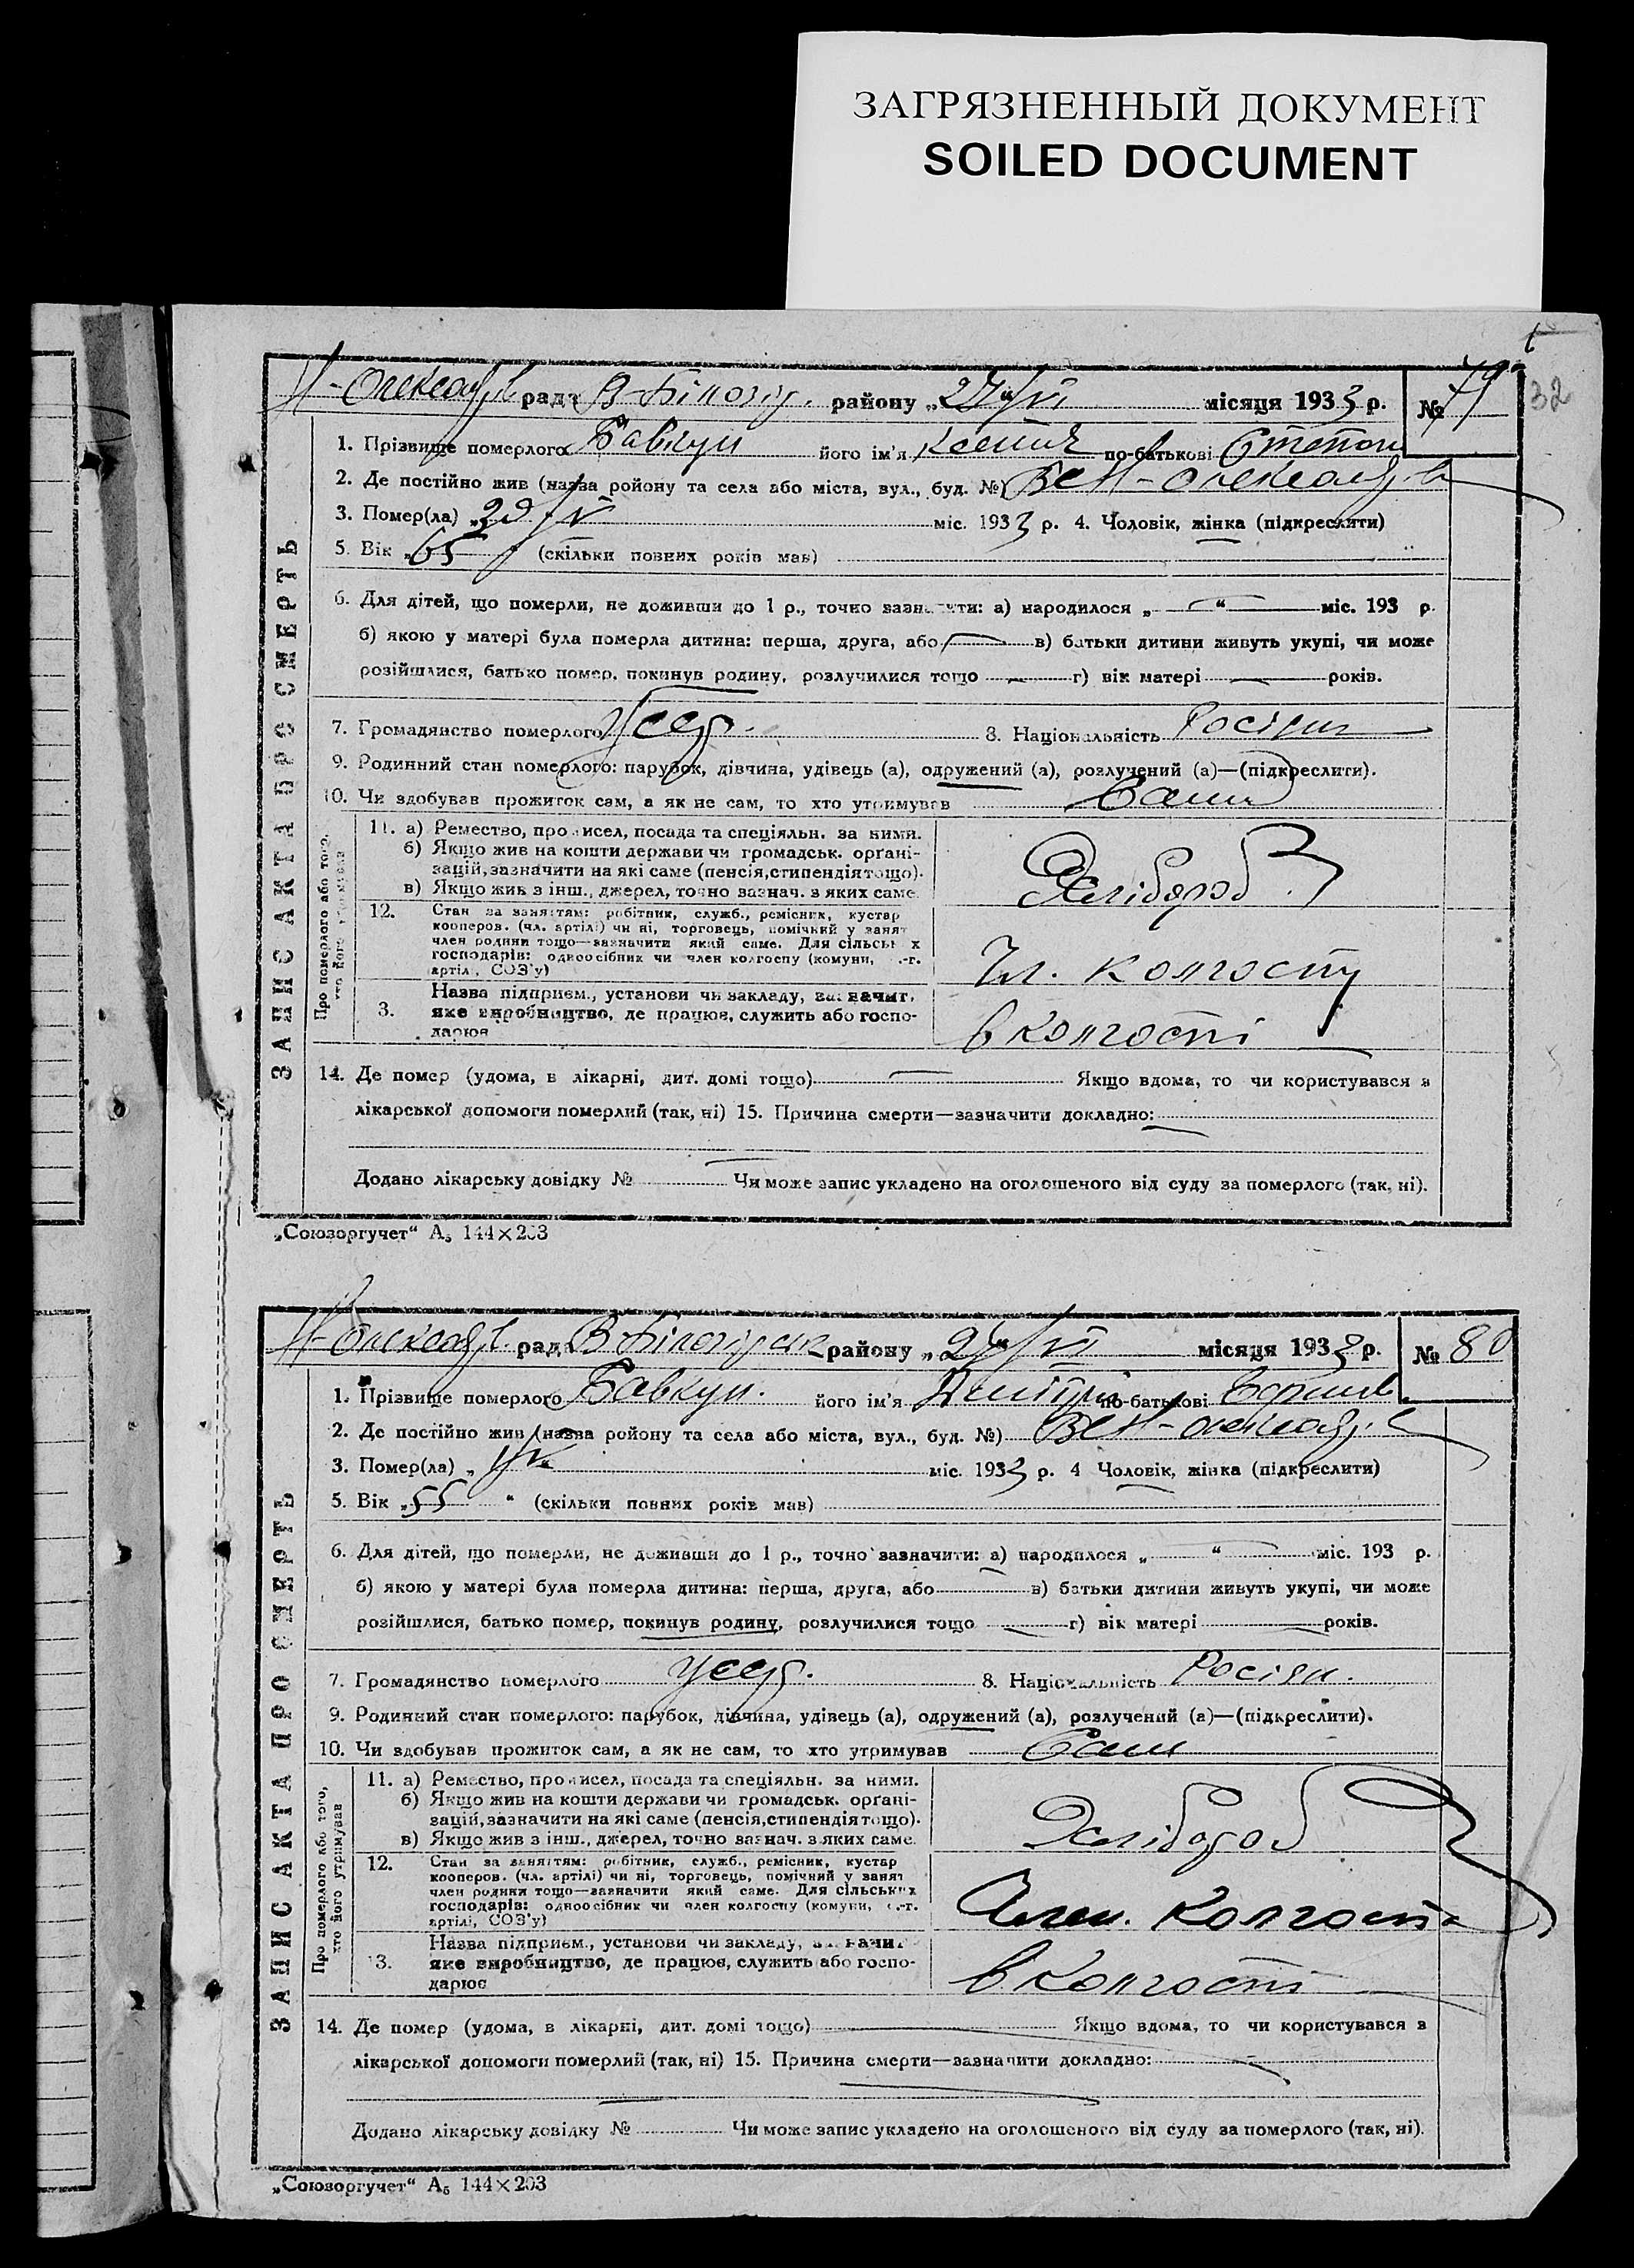 ЗАГРЯЗНЕННЫЙ ДОКУМЕНТ
SOILED DOCUMENT
32
Н-Олександ рада В-Білозір. району „ “ VI місяця 1933 р. № 79
1. Прізвище померлого Бавкун його ім'я Ксенія по-батькові Степан
2. Де постійно жив (назва ройону та села або міста, вул., буд. №)
3. Помер(ла) „ “ V міс. 1933 р. 4. Чоловік, жінка (підкреслити)
5. Вік „65“ (скільки повних років мав)
6. Для дітей, що померли, не доживши до 1 р., точно зазначити: а) народилося „ “ міс. 193 р.
б) якою у матері була померла дитина: перша, друга, або в) батьки дитини живуть укупі, чи може
розійшлися, батько помер, покинув родину, розлучилися тощо г) вік матері років.
7. Громадянство померлого УССР. 8. Національність Росіян
9. Родинний стан померлого: парубок, дівчина, удівець (а), одружений (а), розлучений (а)—(підкреслити).
10. Чи здобував прожиток сам, а як не сам, то хто утримував Сам
ЗАПИС АКТА ПРО СМЕРТЬ
Про померлого або того, хто його утримував
11. а) Ремество, промисел, посада та спеціяльн. за ними.
б) Якщо жив на кошти держави чи громадськ. орґані-
зацій, зазначити на які саме (пенсія, стипендія тощо).
в) Якщо жив з інш., джерел, точно зазнач. з яких саме.
Хлібороб
12. Стан за заняттям: робітник, служб., ремісник, кустар
кооперов. (чл. артілі) чи ні, торговець, помічний у занят
член родини тощо—зазначити який саме. Для сільських
господарів: одноосібник чи член колгоспу (комуни, с.-г.
артілі, СОЗ'у)
Чл. колгоспу
3. Назва підприєм., установи чи закладу, зазначит.
яке виробництво, де працює, служить або госпо-
дарює
в колгоспі
14. Де помер (удома, в лікарні, дит. домі тощо) Якщо вдома, то чи користувався з
лікарської допомоги померлий (так, ні) 15. Причина смерти—зазначити докладно:
Додано лікарську довідку № Чи може запис укладено на оголошеного від суду за померлого (так, ні).
„Союзоргучет“ А₅ 144×203
Н-Олександ рада В-Білозірськ району „ “ VI місяця 1933 р. № 80
1. Прізвище померлого Бавкун. його ім'я Дмитрій по-батькові
2. Де постійно жив (назва ройону та села або міста, вул., буд. №)
3. Помер(ла) „ міс. 1933 р. 4 Чоловік, жінка (підкреслити)
5. Вік „55“ (скільки повних років мав)
6. Для дітей, що померли, не доживши до 1 р., точно зазначити: а) народилося „ “ міс. 193 р.
б) якою у матері була померла дитина: перша, друга, або в) батьки дитини живуть укупі, чи може
розійшлися, батько помер, покинув родину, розлучилися тощо г) вік матері років.
7. Громадянство померлого УССР. 8. Національність Росіян.
9. Родинний стан померлого: парубок, дівчина, удівець (а), одружений (а), розлучений (а)—(підкреслити).
10. Чи здобував прожиток сам, а як не сам, то хто утримував Сам
ЗАПИС АКТА ПРО СМЕРТЬ
Про померлого або того, хто його утримував
11. а) Ремество, промисел, посада та спеціяльн. за ними.
б) Якщо жив на кошти держави чи громадськ. орґані-
зацій, зазначити на які саме (пенсія, стипендія тощо).
в) Якщо жив з інш., джерел, точно зазнач. з яких саме.
Хлібороб
12. Стан за заняттям: робітник, служб., ремісник, кустар
кооперов. (чл. артілі) чи ні, торговець, помічний у занят
член родини тощо—зазначити який саме. Для сільських
господарів: одноосібник чи член колгоспу (комуни, с.-г.
артілі, СОЗ'у)
Член. колгоспа
3. Назва підприєм., установи чи закладу, зазначит.
яке виробництво, де працює, служить або госпо-
дарює
в колгоспі
14. Де помер (удома, в лікарні, дит. домі тощо) Якщо вдома, то чи користувався з
лікарської допомоги померлий (так, ні) 15. Причина смерти—зазначити докладно:
Додано лікарську довідку № Чи може запис укладено на оголошеного від суду за померлого (так, ні).
„Союзоргучет“ А₅ 144×203